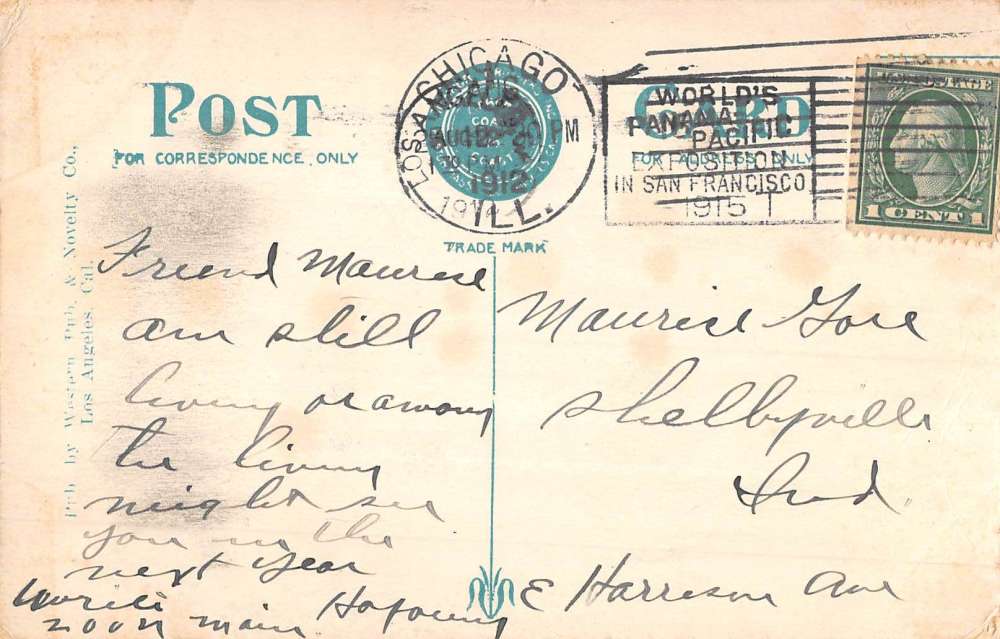 POST CARD
FOR CORRESPONDENCE ONLY
FOR ADDRESS ONLY
TRADE MARK
CHICAGO
ILL.
LOS ANGELES
PM
1912
WORLD'S
PANAMA
PACIFIC
EXPOSITION
IN SAN FRANCISCO
1915
1 CENT 1
Pub. by Western Pub. & Novelty Co.,
Los Angeles, Cal.
Friend Maurice
am still
living or among
the living
might see
you in the
next year
write
200 N main
Maurice Gore
Shelbyville
Ind.
E Harrison Ave